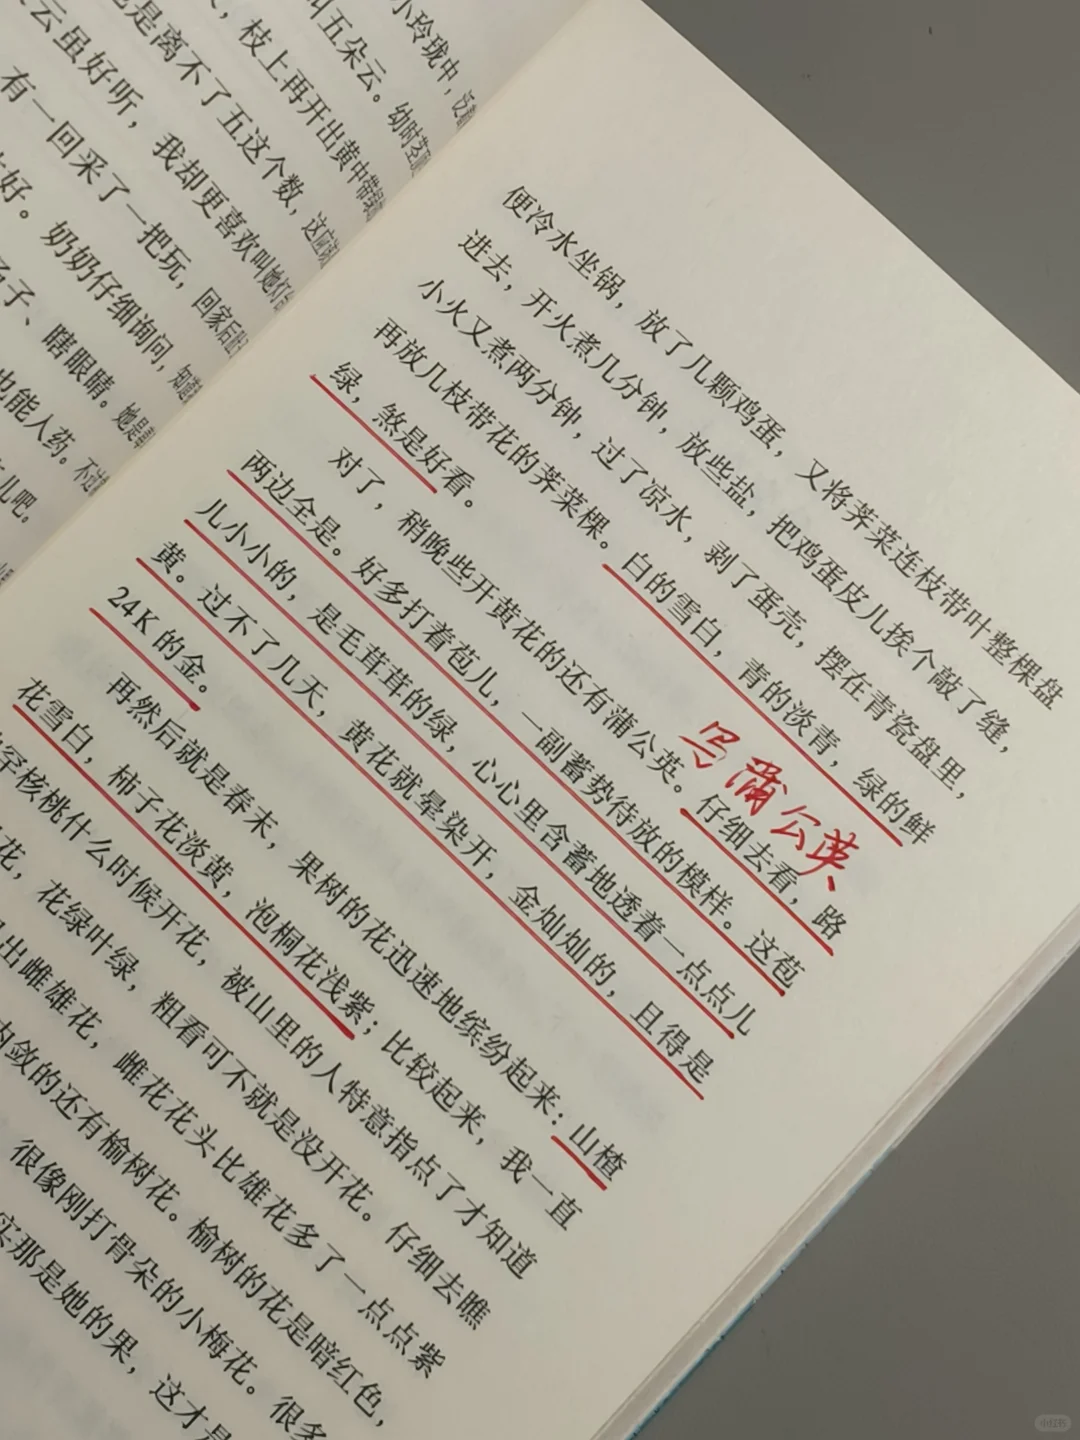 小玲珑中，泛着
叫五朵云。幼时
，枝上再开出黄中带绿
也是离不了五这个数，这
云虽好听，我却更喜欢叫她灯
有一回采了一把玩，回家后
好。奶奶仔细询问，知
子、瞎眼睛。她是
也能入药。不过
儿吧。
便冷水坐锅，放了几颗鸡蛋，又将荠菜连枝带叶整棵盘
进去，开火煮几分钟，放些盐，把鸡蛋皮儿挨个敲了缝，
小火又煮两分钟，过了凉水，剥了蛋壳，摆在青瓷盘里，
再放几枝带花的荠菜棵。白的雪白，青的淡青，绿的鲜
绿，煞是好看。
写蒲公英
对了，稍晚些开黄花的还有蒲公英。仔细去看，路
两边全是。好多打着苞儿，一副蓄势待放的模样。这苞
儿小小的，是毛茸茸的绿，心心里含蓄地透着一点点儿
黄。过不了几天，黄花就晕染开，金灿灿的，且得是
24K的金。
再然后就是春末，果树的花迅速地缤纷起来：山楂
花雪白，柿子花淡黄，泡桐花浅紫；比较起来，我一直
罕核桃什么时候开花，被山里的人特意指点了才知道
花，花绿叶绿，粗看可不就是没开花。仔细去瞧
出雌雄花，雌花花头比雄花多了一点点紫
内敛的还有榆树花。榆树的花是暗红色，
很像刚打骨朵的小梅花。很多
实那是她的果，这才是
小红书